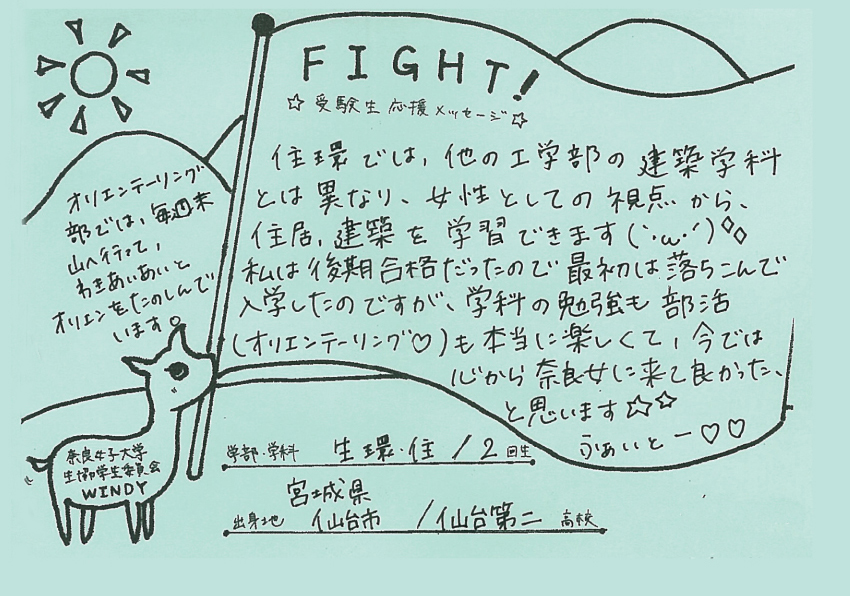 FIGHT!
☆受験生応援メッセージ☆
住環では、他の工学部の建築学科
とは異なり、女性としての視点から、
住居、建築を学習できます(`･ω･´)◇◇
私は後期合格だったので最初は落ちこんで
入学したのですが、学科の勉強も部活
(オリエンテーリング♡)も本当に楽しくて、今では
心から奈良女に来て良かった、
と思います☆☆
ふぁいとー♡♡
オリエンテーリング
部では、毎週末
山へ行って、
わきあいあいと
オリエンをたのしんで
います。
奈良女子大学
生協学生委員会
WINDY
学部・学科 生環・住 / 2回生
宮城県
出身地 仙台市 / 仙台第二 高校